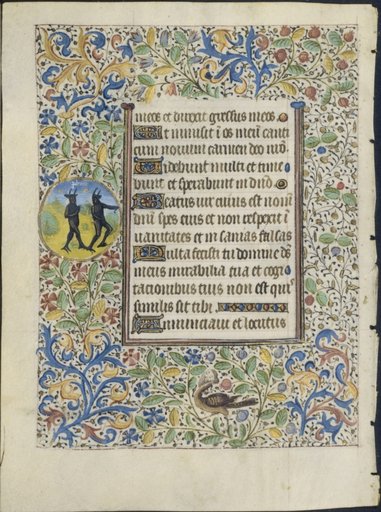 meos et direxit gressus meos
Et inmisit i os meū canti
cum nouum carmen deo nr̄o
Videbunt multi et time
bunt et sperabunt in dn̄o
Beatus vir cuius est nom̄
dn̄i spes eius et non respexit i
uanitates et insanias falsas
Multa fecisti tu domine ds̄
meus mirabilia tua et cogi
tacionibus tuis non est qui
similis sit tibi
Annunciaui et locutus